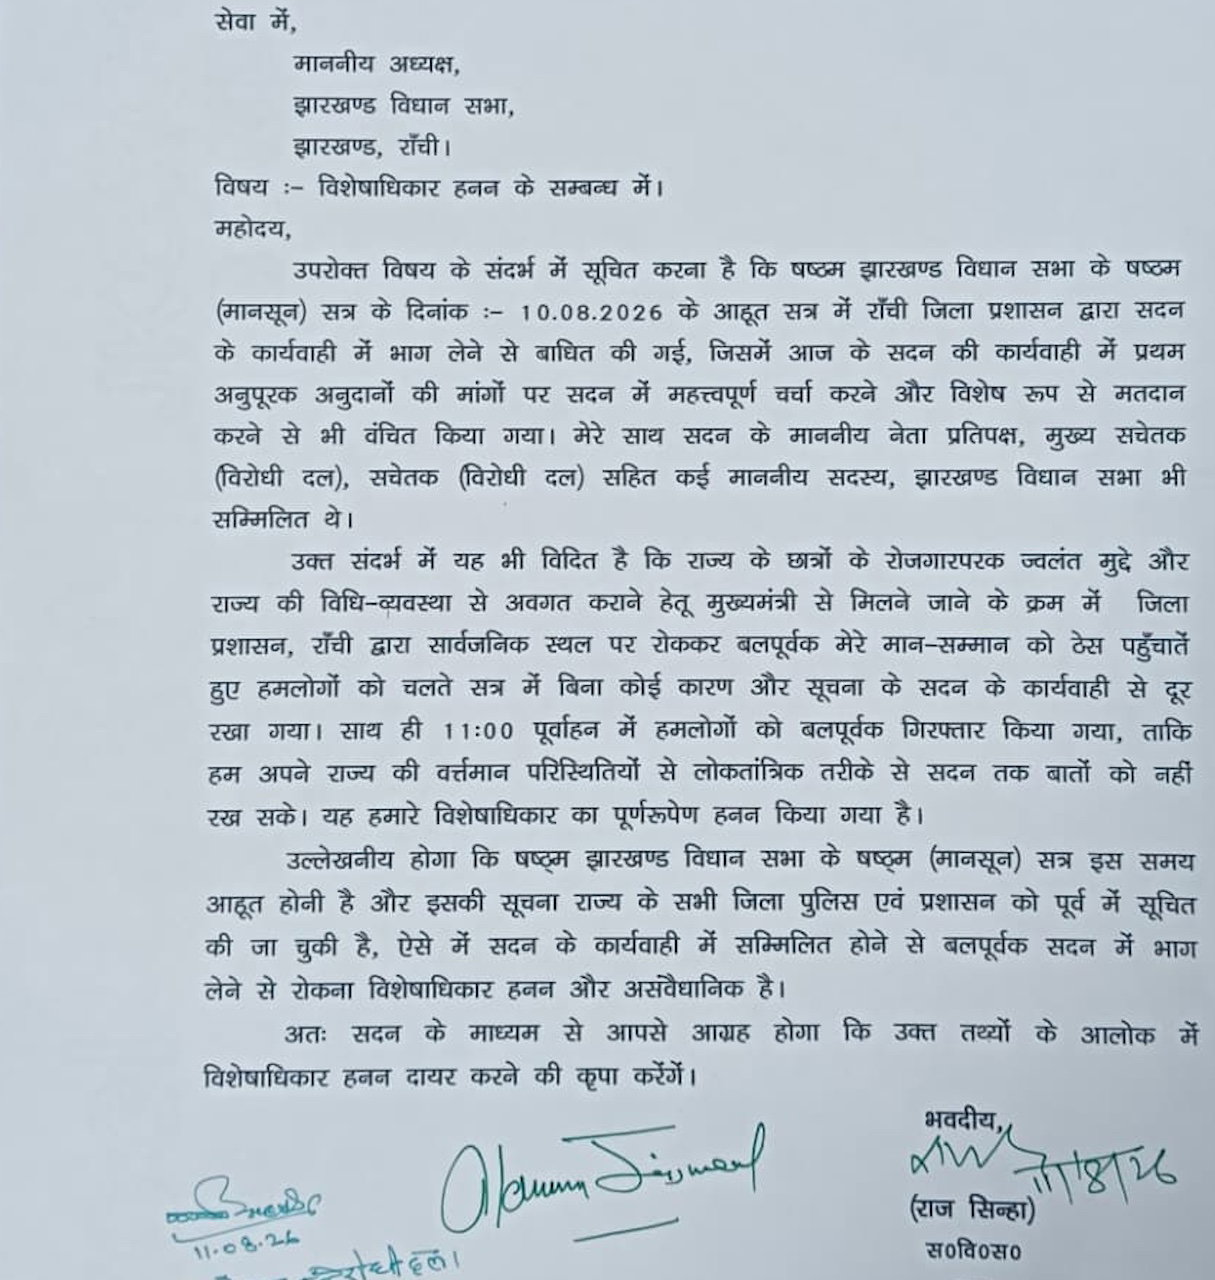 सेवा में,
माननीय अध्यक्ष,
झारखण्ड विधान सभा,
झारखण्ड, राँची।
विषय :– विशेषाधिकार हनन के सम्बन्ध में।
महोदय,
उपरोक्त विषय के संदर्भ में सूचित करना है कि षष्ठम झारखण्ड विधान सभा के षष्ठम
(मानसून) सत्र के दिनांक :– 10.08.2026 के आहूत सत्र में राँची जिला प्रशासन द्वारा सदन
के कार्यवाही में भाग लेने से बाधित की गई, जिसमें आज के सदन की कार्यवाही में प्रथम
अनुपूरक अनुदानों की मांगों पर सदन में महत्त्वपूर्ण चर्चा करने और विशेष रूप से मतदान
करने से भी वंचित किया गया। मेरे साथ सदन के माननीय नेता प्रतिपक्ष, मुख्य सचेतक
(विरोधी दल), सचेतक (विरोधी दल) सहित कई माननीय सदस्य, झारखण्ड विधान सभा भी
सम्मिलित थे।
उक्त संदर्भ में यह भी विदित है कि राज्य के छात्रों के रोजगारपरक ज्वलंत मुद्दे और
राज्य की विधि–व्यवस्था से अवगत कराने हेतू मुख्यमंत्री से मिलने जाने के क्रम में जिला
प्रशासन, राँची द्वारा सार्वजनिक स्थल पर रोककर बलपूर्वक मेरे मान–सम्मान को ठेस पहुँचातें
हुए हमलोगों को चलते सत्र में बिना कोई कारण और सूचना के सदन के कार्यवाही से दूर
रखा गया। साथ ही 11:00 पूर्वाहन में हमलोगों को बलपूर्वक गिरफ्तार किया गया, ताकि
हम अपने राज्य की वर्त्तमान परिस्थितियों से लोकतांत्रिक तरीके से सदन तक बातों को नहीं
रख सके। यह हमारे विशेषाधिकार का पूर्णरूपेण हनन किया गया है।
उल्लेखनीय होगा कि षष्ठ्म झारखण्ड विधान सभा के षष्ठ्म (मानसून) सत्र इस समय
आहूत होनी है और इसकी सूचना राज्य के सभी जिला पुलिस एवं प्रशासन को पूर्व में सूचित
की जा चुकी है, ऐसे में सदन के कार्यवाही में सम्मिलित होने से बलपूर्वक सदन में भाग
लेने से रोकना विशेषाधिकार हनन और असंवैधानिक है।
अतः सदन के माध्यम से आपसे आग्रह होगा कि उक्त तथ्यों के आलोक में
विशेषाधिकार हनन दायर करने की कृपा करेंगें।
भवदीय,
11/8/26
(राज सिन्हा)
स०वि०स०
11.08.26